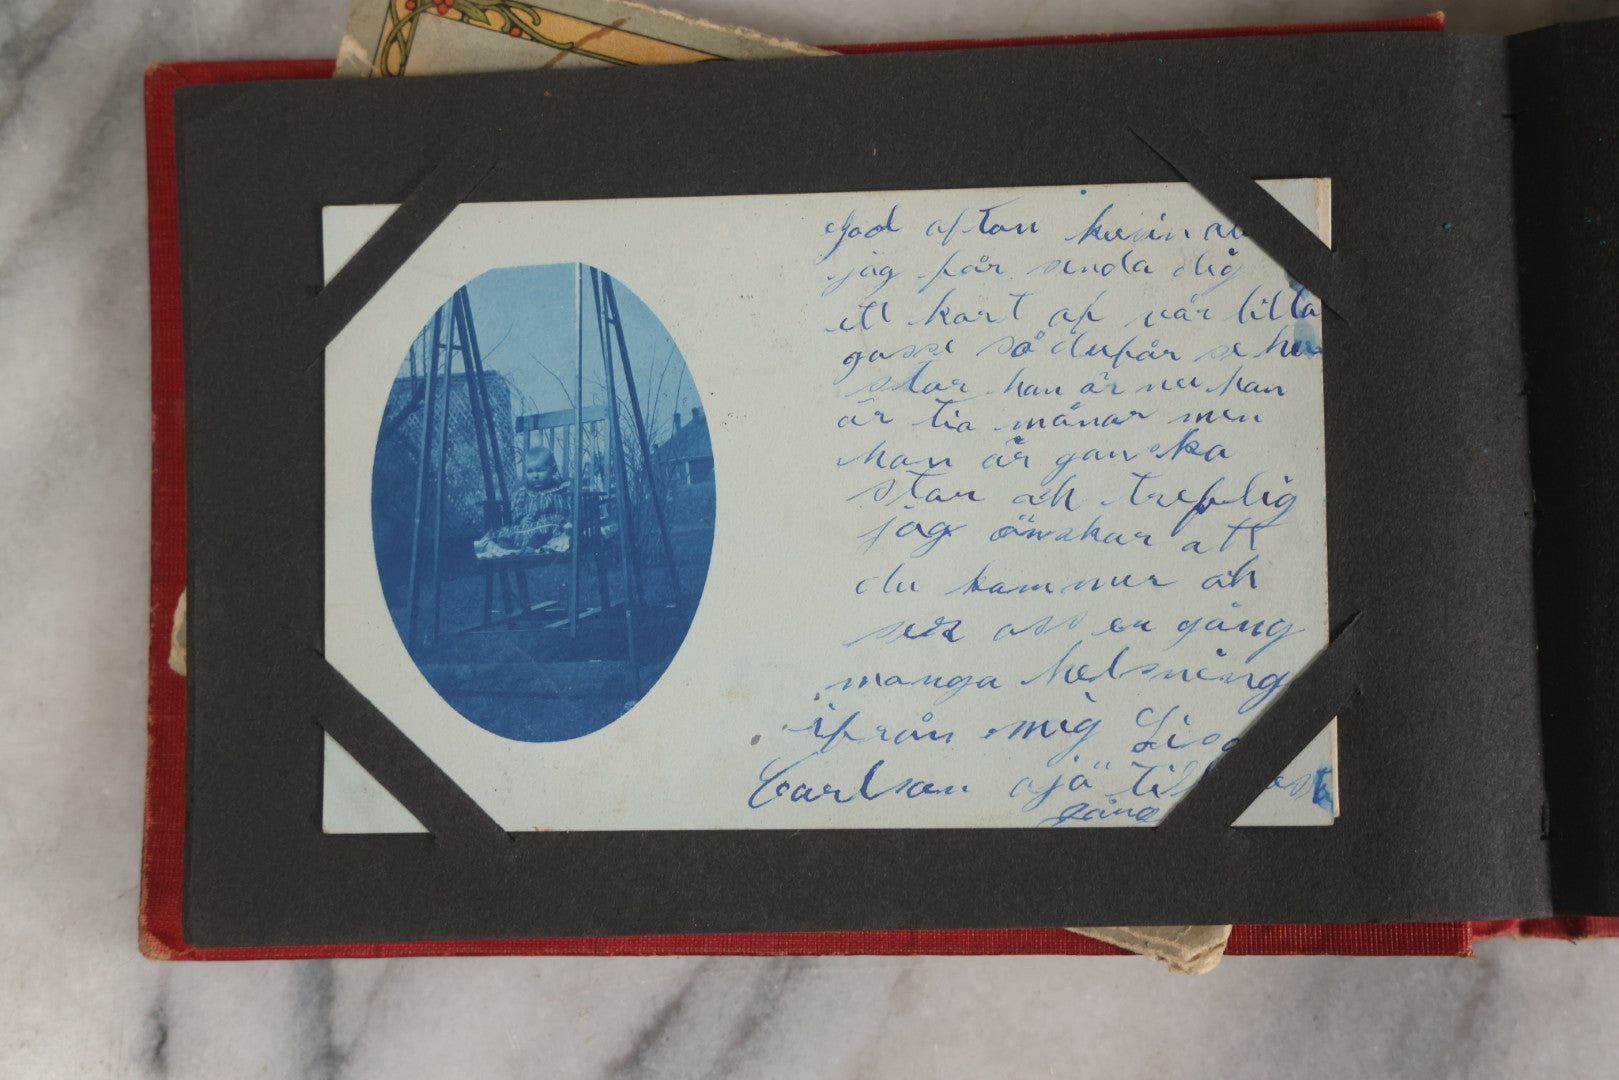 God aftan kuin
jag får senda dig
ett kort af vår lilla
gosse så du får se hur
stor han är nu han
är tio månar men
han är ganska
stor åh treflig
jag önskar att
du kommer åh
ser oss en gång
manga helsning
ifrån mig
Carlson ajö till
gång